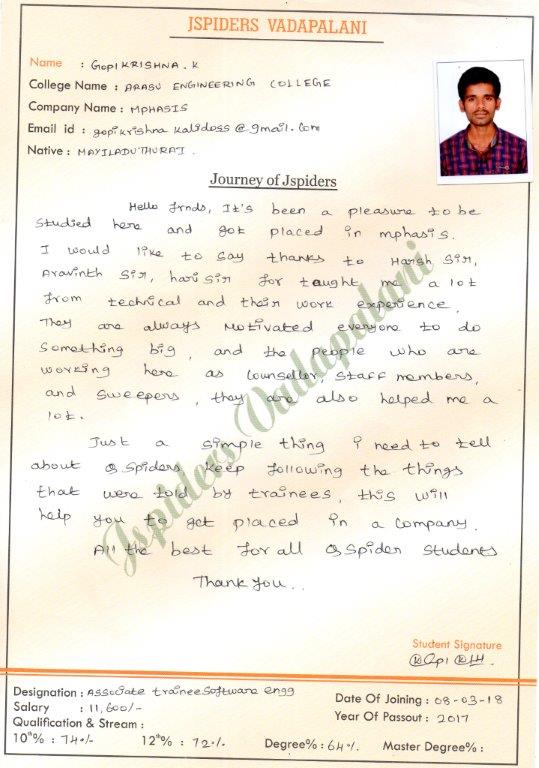 JSPIDERS VADAPALANI
Name : GOPIKRISHNA. K
College Name : ARASU ENGINEERING COLLEGE
Company Name : MPHASIS
Email id : gopikrishna kalidoss @ gmail. Com
Native : MAYILADUTHURAI .
Journey of Jspiders
Hello frnds, It's been a pleasure to be
studied here and got placed in mphasis.
I would like to say thanks to Harsh Sir,
Aravinth Sir, hari Sir for taught me a lot
from technical and their work experience,
They are always Motivated everyone to do
something big, and the people who are
working here as counseller, staff members,
and sweepers, they are also helped me a
lot.
Just a simple thing i need to tell
about QSpiders, keep following the things
that were told by trainees, this will
help you to get placed in a company.
All the best for all QSpider Students
Thank You..
Jspiders Vadapalani
Student Signature
Designation : Associate trainee software engg
Salary : 11,600/-
Qualification & Stream :
10th% : 74%. 12th% : 72%. Degree% : 64%. Master Degree% :
Date Of Joining : 08-03-18
Year Of Passout : 2017